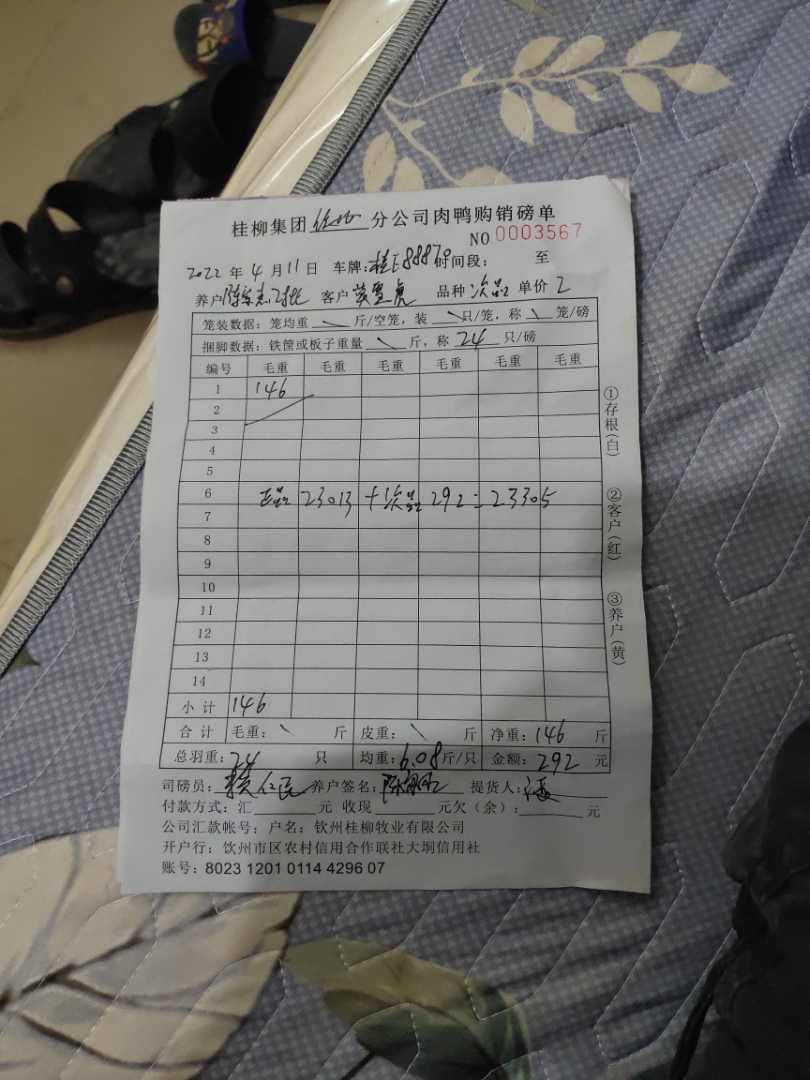 桂柳集团 分公司肉鸭购销磅单
NO 0003567
2022 年 4 月 11 日 车牌: 桂E88879 时间段: 至
养户 陈 客户 虎 品种 次品 单价 2
笼装数据: 笼均重 斤/空笼, 装 只/笼, 称 笼/磅
捆脚数据: 铁筐或板子重量 斤, 称 24 只/磅
编号 毛重 毛重 毛重 毛重 毛重 毛重
1 146
2
3
4
5
6
正品 23013 + 次品 292 = 23305
7
8
9
10
11
12
13
14
小计 146
合计 毛重: 斤 皮重: 斤 净重: 146 斤
总羽重: 24 只 均重: 6.08 斤/只 金额: 292 元
①存根(白)
②客户(红)
③养户(黄)
司磅员: 仁民 养户签名: 陈 提货人:
付款方式: 汇 元 收现 元欠(余): 元
公司汇款帐号: 户名: 钦州桂柳牧业有限公司
开户行: 钦州市区农村信用合作联社大垌信用社
账号: 8023 1201 0114 4296 07